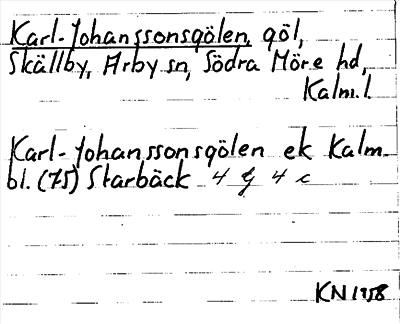 Karl-Johanssonsgölen, göl,
Skällby, Arby sn, Södra Möre hd,
Kalm. l.
Karl-Johanssonsgölen ek Kalm.
bl. (75) Starbäck 4 g 4 c
KN 1958